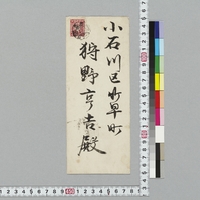 小石川区竹早町
狩野亨吉殿